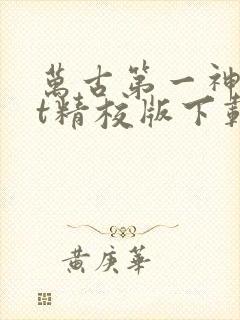 萬古第一神
t精校版下載
黃庚華